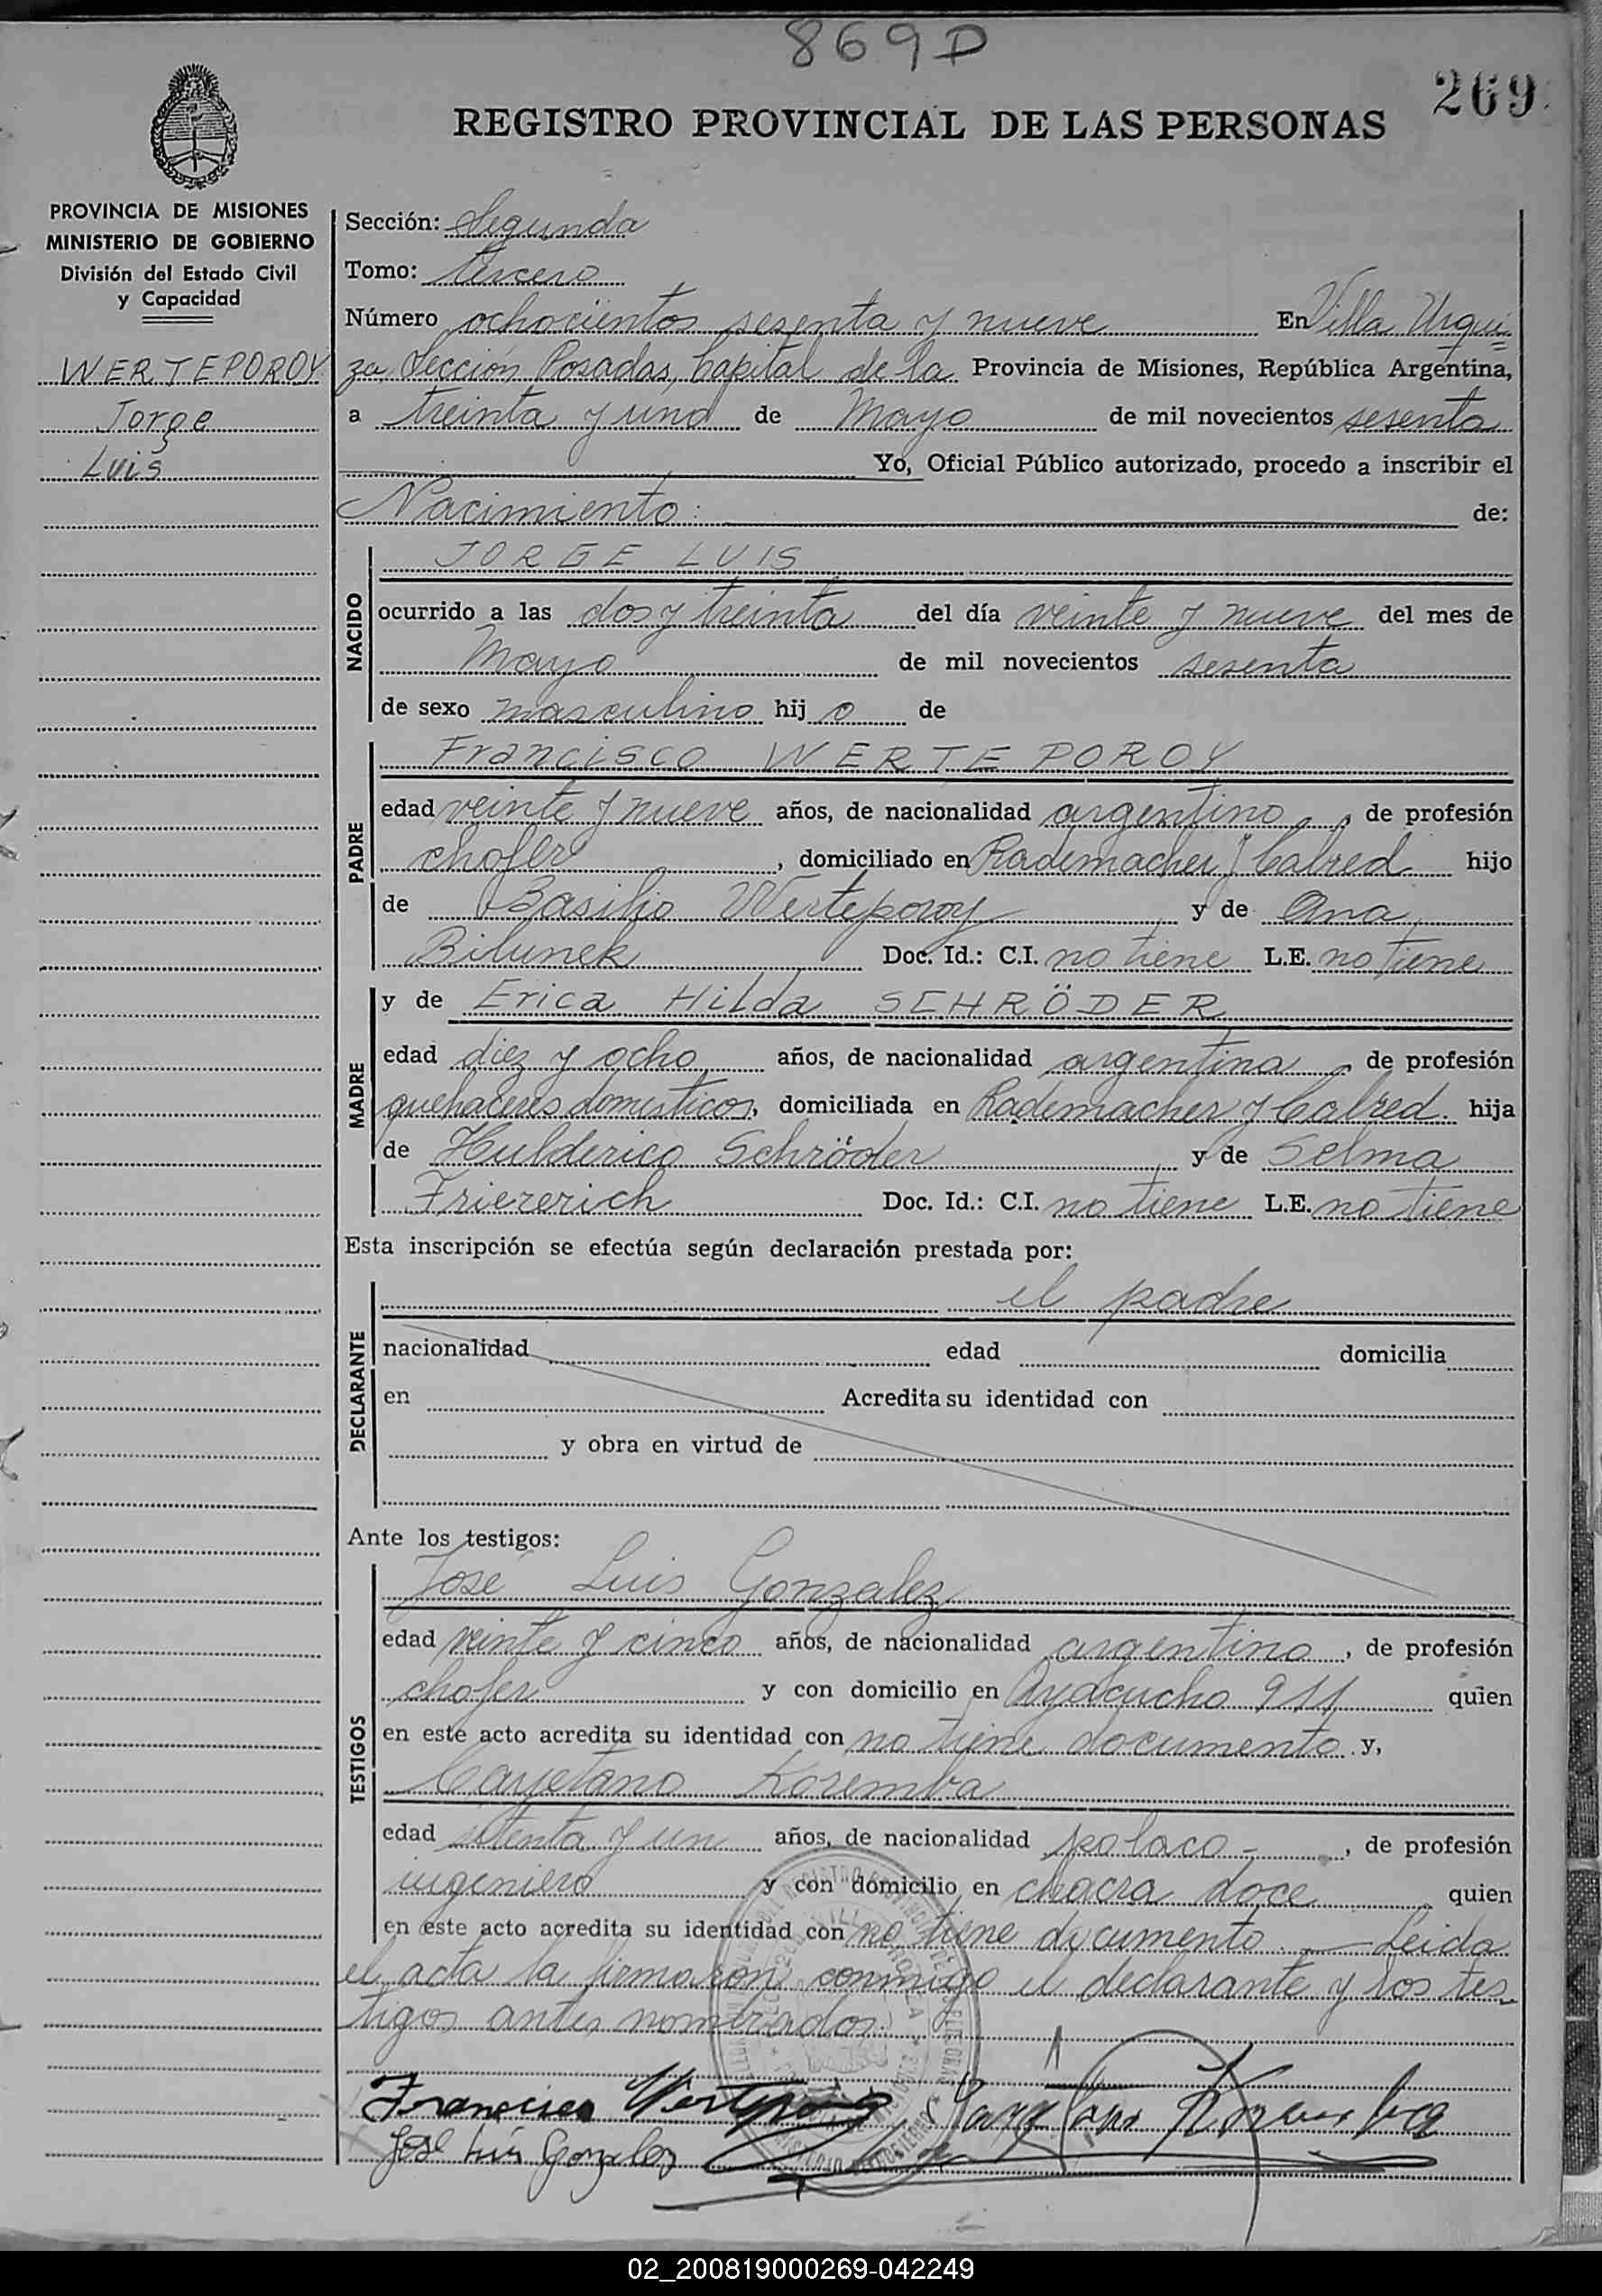 869D
269
REGISTRO PROVINCIAL DE LAS PERSONAS
PROVINCIA DE MISIONES
MINISTERIO DE GOBIERNO
División del Estado Civil
y Capacidad
WERTEPOROY
Jorge
Luis
Sección: Segunda
Tomo: tercero
Número ochocientos sesenta y nueve En Villa Urqui=
za, Sección Posadas, Capital de la Provincia de Misiones, República Argentina,
a treinta y uno de Mayo de mil novecientos sesenta
Yo, Oficial Público autorizado, procedo a inscribir el
Nacimiento: de:
NACIDO
JORGE LUIS
ocurrido a las dos y treinta del día veinte y nueve del mes de
Mayo de mil novecientos sesenta
de sexo masculino hijo de
PADRE
Francisco WERTEPOROY
edad veinte y nueve años, de nacionalidad argentino, de profesión
chofer, domiciliado en Rademacher y Calred hijo
de Basilio Werteporoy y de Ana
Bilunek Doc. Id.: C.I. no tiene L.E. no tiene
MADRE
y de Erica Hilda SCHRÖDER
edad diez y ocho años, de nacionalidad argentina, de profesión
quehaceres domesticos, domiciliada en Rademacher y Calred. hija
de Hulderico Schröder y de Selma
Friezerich Doc. Id.: C.I. no tiene L.E. no tiene
Esta inscripción se efectúa según declaración prestada por:
DECLARANTE
el padre
nacionalidad edad domicilia
en Acredita su identidad con
y obra en virtud de
Ante los testigos:
TESTIGOS
José Luis Gonzalez
edad veinte y cinco años, de nacionalidad argentino, de profesión
chofer y con domicilio en Ayacucho 911 quien
en este acto acredita su identidad con no tiene documento y,
Cayetano Koremba
edad setenta y un años, de nacionalidad polaco-, de profesión
ingeniero y con domicilio en chacra doce quien
en este acto acredita su identidad con no tiene documento. — Leida
el acta la firmaron conmigo el declarante y los tes-
tigos antes nombrados.
José Luis Gonzalez
02_200819000269-042249